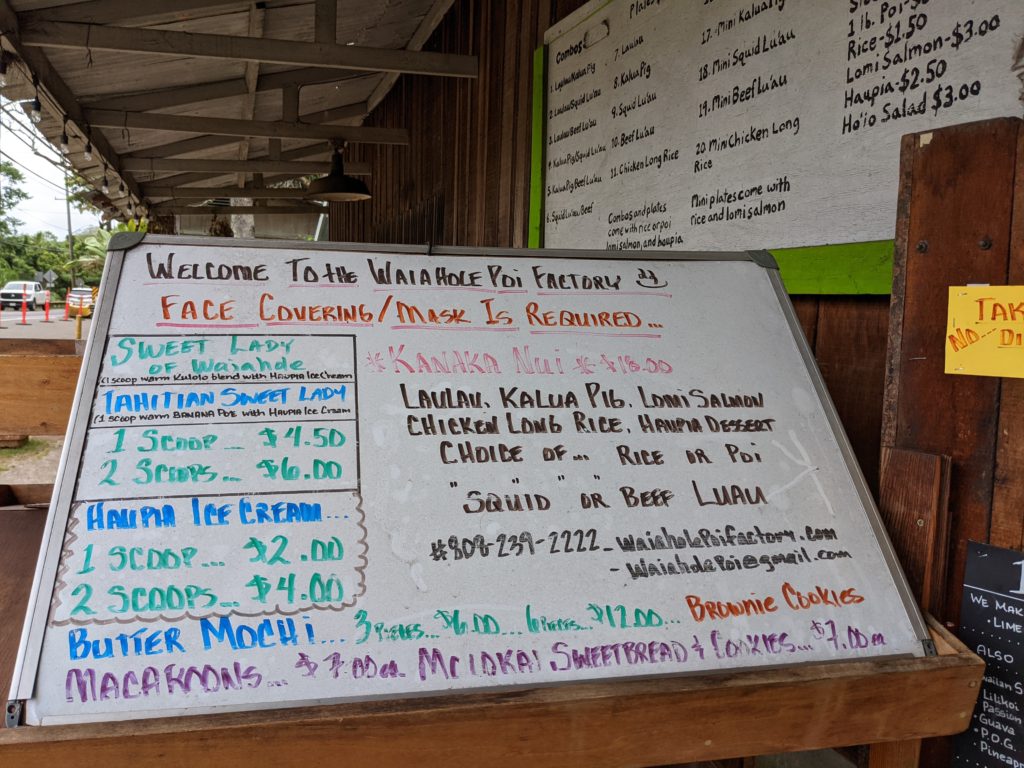 Plates
Combos
1. Laulau/Kalua Pig
2. Laulau/Squid Lu'au
3. Laulau/Beef Lu'au
4. Kalua Pig/Squid Lu'au
5. Kalua Pig/Beef Lu'au
6. Squid Lu'au/Beef
7. Laulau
8. Kalua Pig
9. Squid Lu'au
10. Beef Lu'au
11. Chicken Long Rice
Combos and plates
come with rice or poi
lomi salmon, and haupia
17. Mini Kalua Pig
18. Mini Squid Lu'au
19. Mini Beef Lu'au
20. Mini Chicken Long
Rice
Mini plates come with
rice and lomi salmon
1 lb. Poi-$
Rice-$1.50
Lomi Salmon-$3.00
Haupia-$2.50
Ho'io Salad $3.00
WELCOME TO THE WAIAHOLE POI FACTORY
FACE COVERING/MASK IS REQUIRED...
SWEET LADY
OF Waiahole
(1 scoop warm Kulolo blend with HAUPIA Ice Cream
TAHITIAN SWEET LADY
(1 scoop warm BANANA POE with HAUPIA Ice Cream
1 SCOOP... $4.50
2 SCOOPS... $6.00
HAUPIA ICE CREAM...
1 SCOOP... $2.00
2 SCOOPS... $4.00
*KANAKA NUI * $18.00
LAULAU, KALUA PIG, LOMI SALMON
CHICKEN LONG RICE, HAUPIA DESSERT
CHOICE OF... RICE OR POI
"SQUID" OR BEEF LUAU
#808-239-2222 - waiaholePoifactory.com
- WaiaholePoi@gmail.com
BUTTER MOCHI... 3 PIECES... $6.00... 6 PIECES... $12.00... BROWNIE COOKIES
MACAROONS... $7.00 ea. MOLOKAI SWEETBREAD & COOKIES... $7.00 ea
TAK
NO... DI
WE MAK
• LIME
ALSO
• Lilikoi
Passion
• Guava
• P.O.G.
• Pineapp